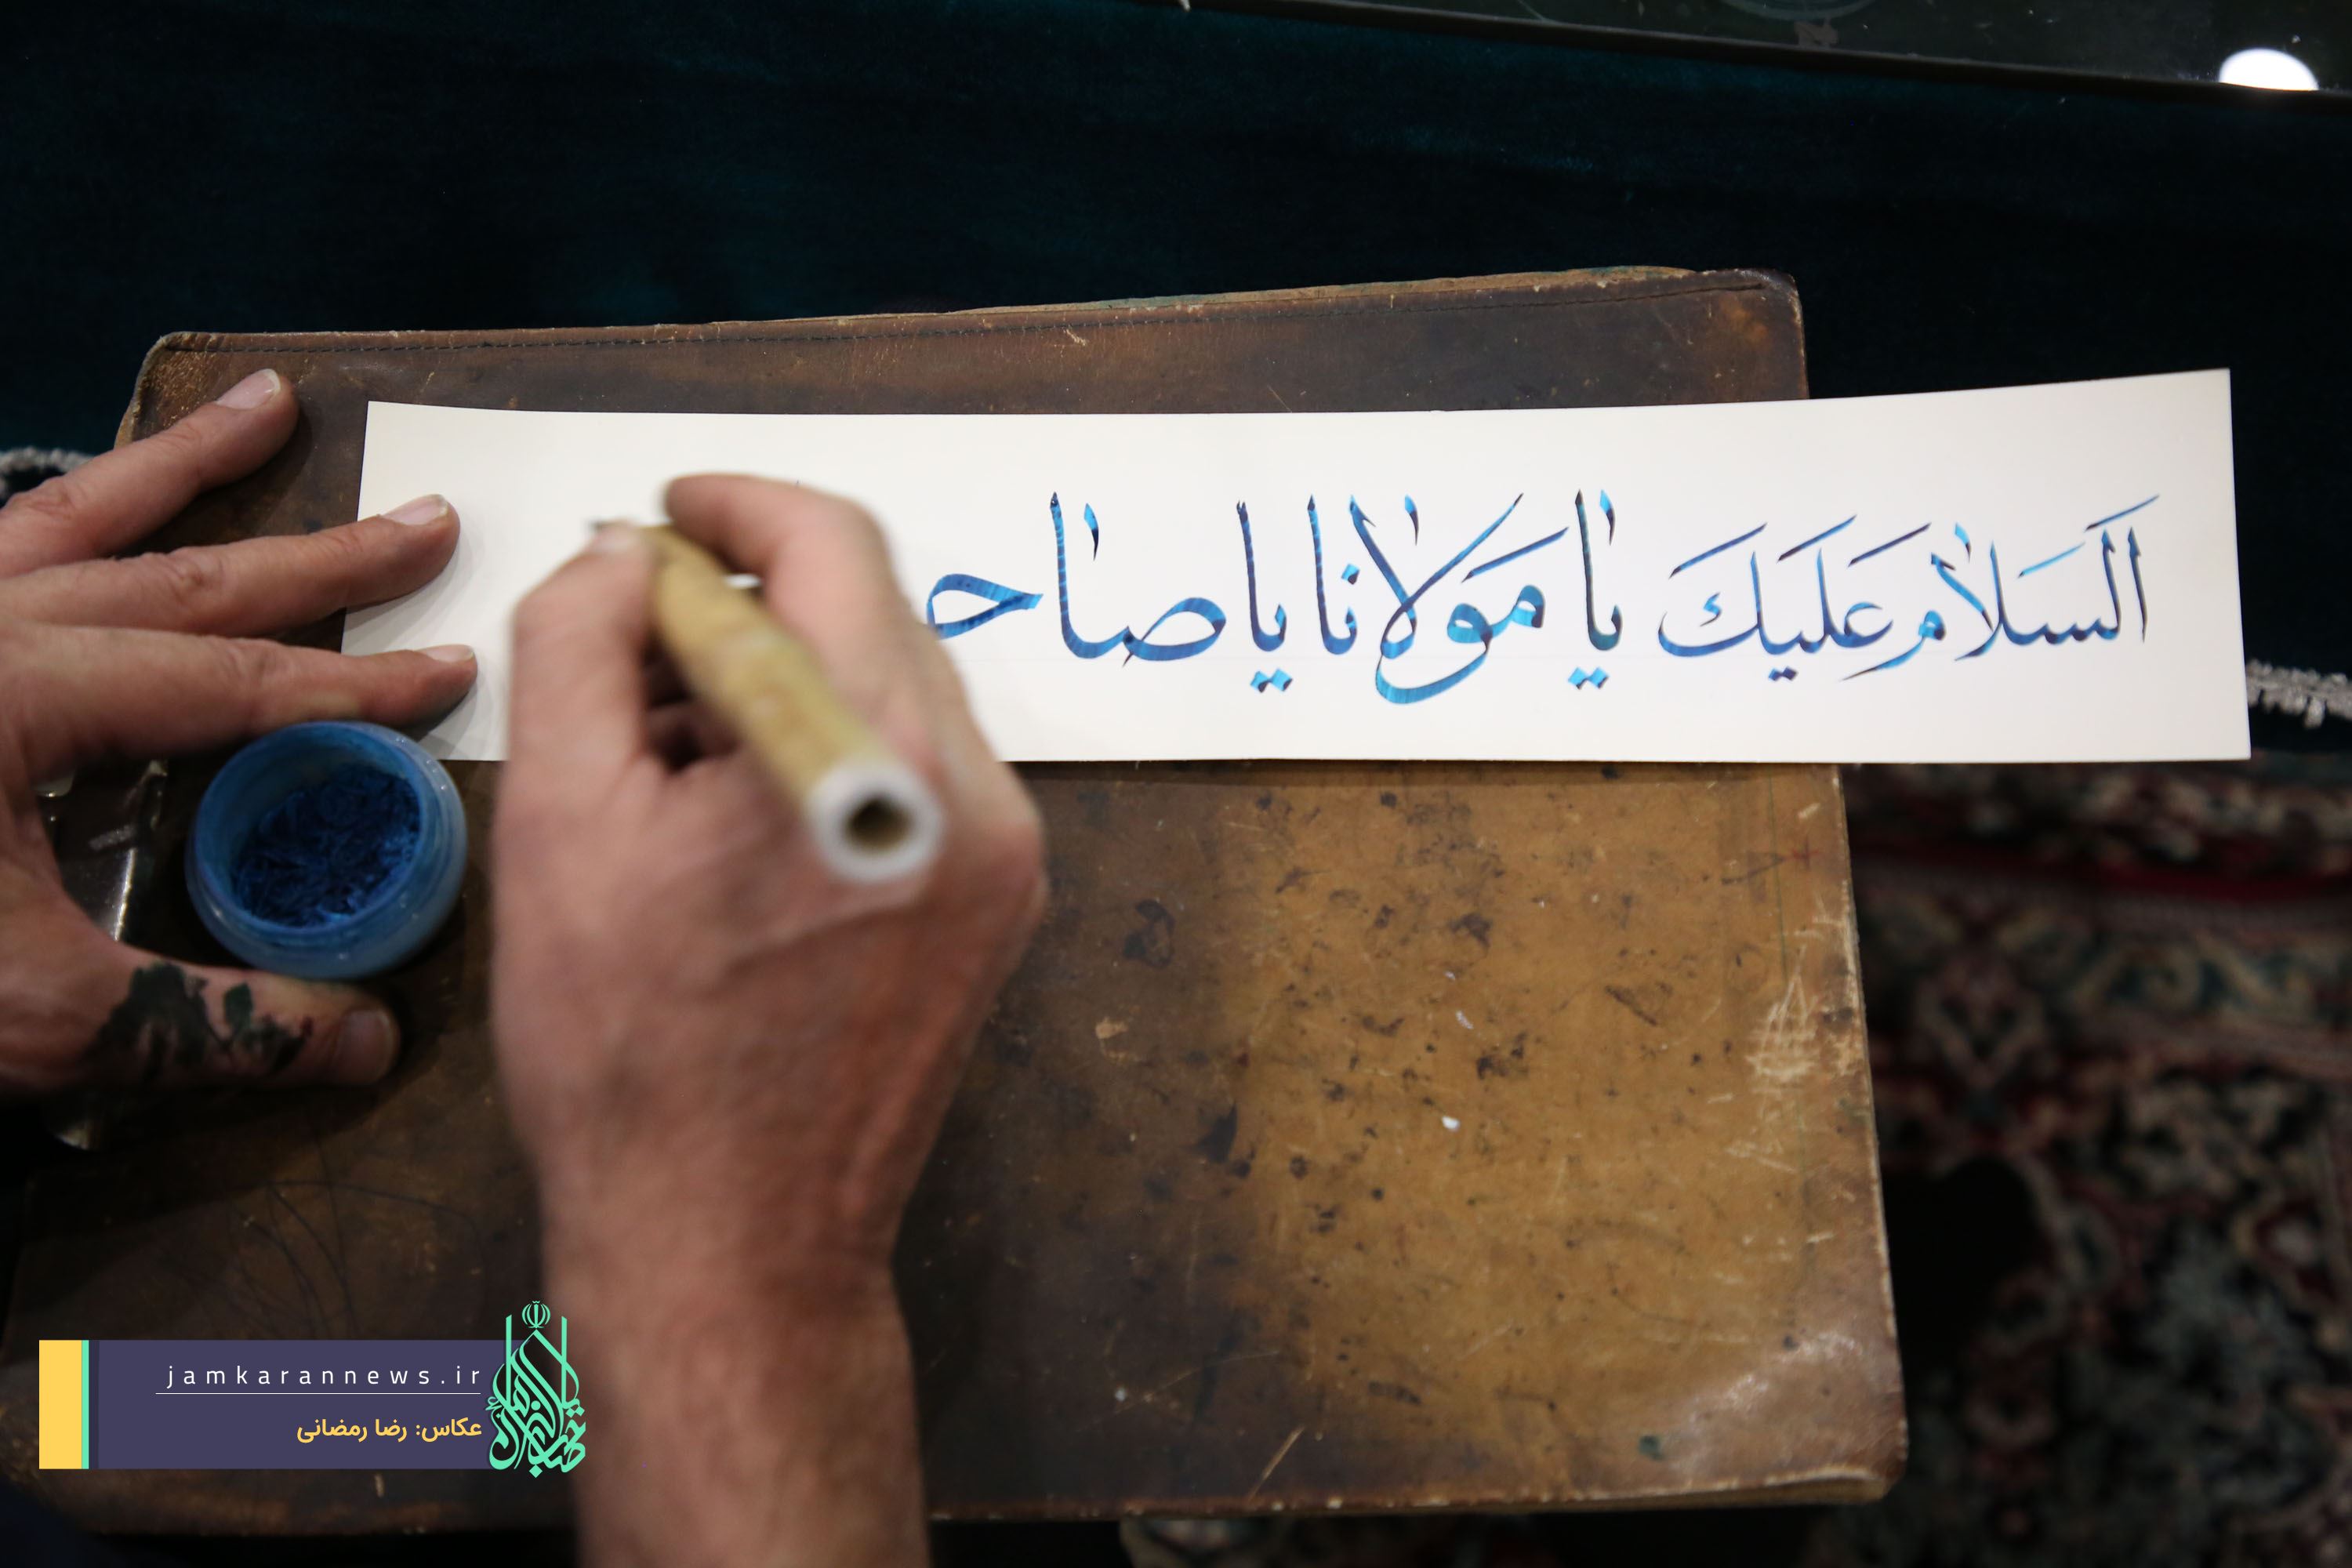 اَلسَلامُ عَلَیكَ یا مَولانا یا صاحـ
jamkarannews.ir
عکاس: رضا رمضانی